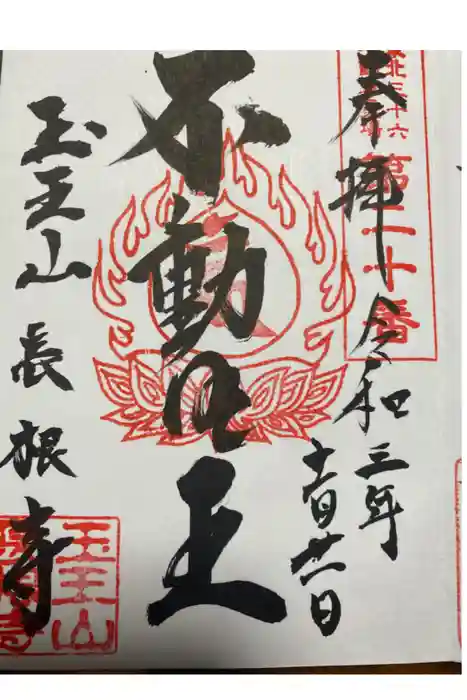 奉拝 令和三年
十一月廿一日
北三十六
第二十番
不動明王
玉王山 長根寺
玉王山